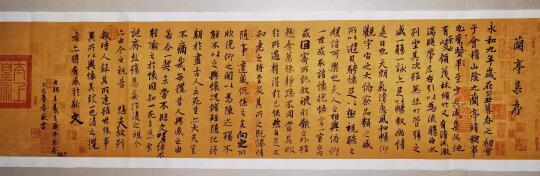 蘭亭集序
永和九年歲在癸丑暮春之初會
于會稽山陰之蘭亭脩稧事
也羣賢畢至少長咸集此地
有峻領茂林脩竹又有清流激
湍暎帶左右引以為流觴曲水
列坐其次雖無絲竹管弦之
盛一觴一詠亦足以暢叙幽情
是日也天朗氣清惠風和暢仰
觀宇宙之大俯察品類之盛
所以遊目騁懷足以極視聽之
娛信可樂也夫人之相與俯仰
一世或取諸懷抱悟言一室之內
或因寄所託放浪形骸之外雖
趣舍萬殊靜躁不同當其欣
於所遇蹔得於己怏然自足不
知老之將至及其所之既惓情
隨事遷感慨係之矣向之所
欣俛仰之間以為陳迹猶不
能不以之興懷況脩短隨化終
期於盡古人云死生亦大矣豈
不痛哉每攬昔人興感之由
若合一契未嘗不臨文嗟悼不
能喻之於懷固知一死生為虛
誕齊彭殤為妄作後之視今
亦由今之視昔悲夫故列
叙時人錄其所述雖世殊事
異所以興懷其致一也後之攬
者亦將有感於斯文